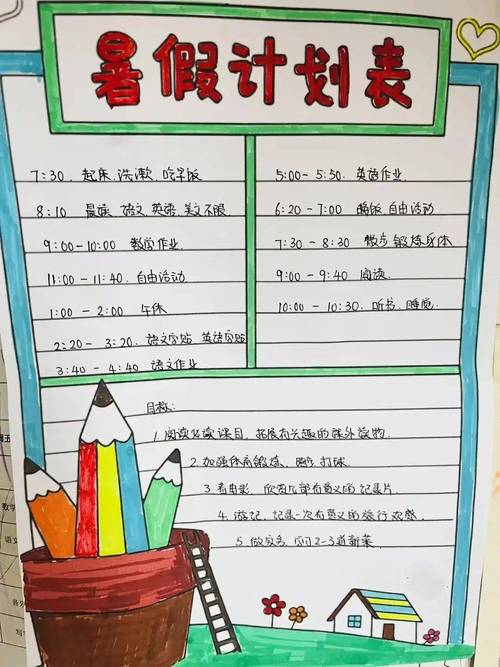 暑假计划表
7:30. 起床.洗漱.吃早饭
8:10 晨读. 语文 英语.美文不限.
9:00-10:00 数学作业
11:00 - 11:40 自由活动
1:00 - 2:00 午休
2:20 - 3:20. 语文字帖 英语字帖
3:40 - 4:40 语文作业
5:00 - 5:50. 英语作业.
6:20 - 7:00 晚饭.自由活动
7:30 - 8:30 散步 锻炼身体
9:00 - 9:40 阅读.
10:00 - 10:30. 听书.睡觉
目标:
1.阅读必读课目, 拓展有兴趣的课外读物.
2.加强体育锻炼, 打球
3.看电影, 欣赏几部有意义的记录片
4. 游记, 记录一次有意义的旅行 观感.
5.做家务, 2-3道新菜